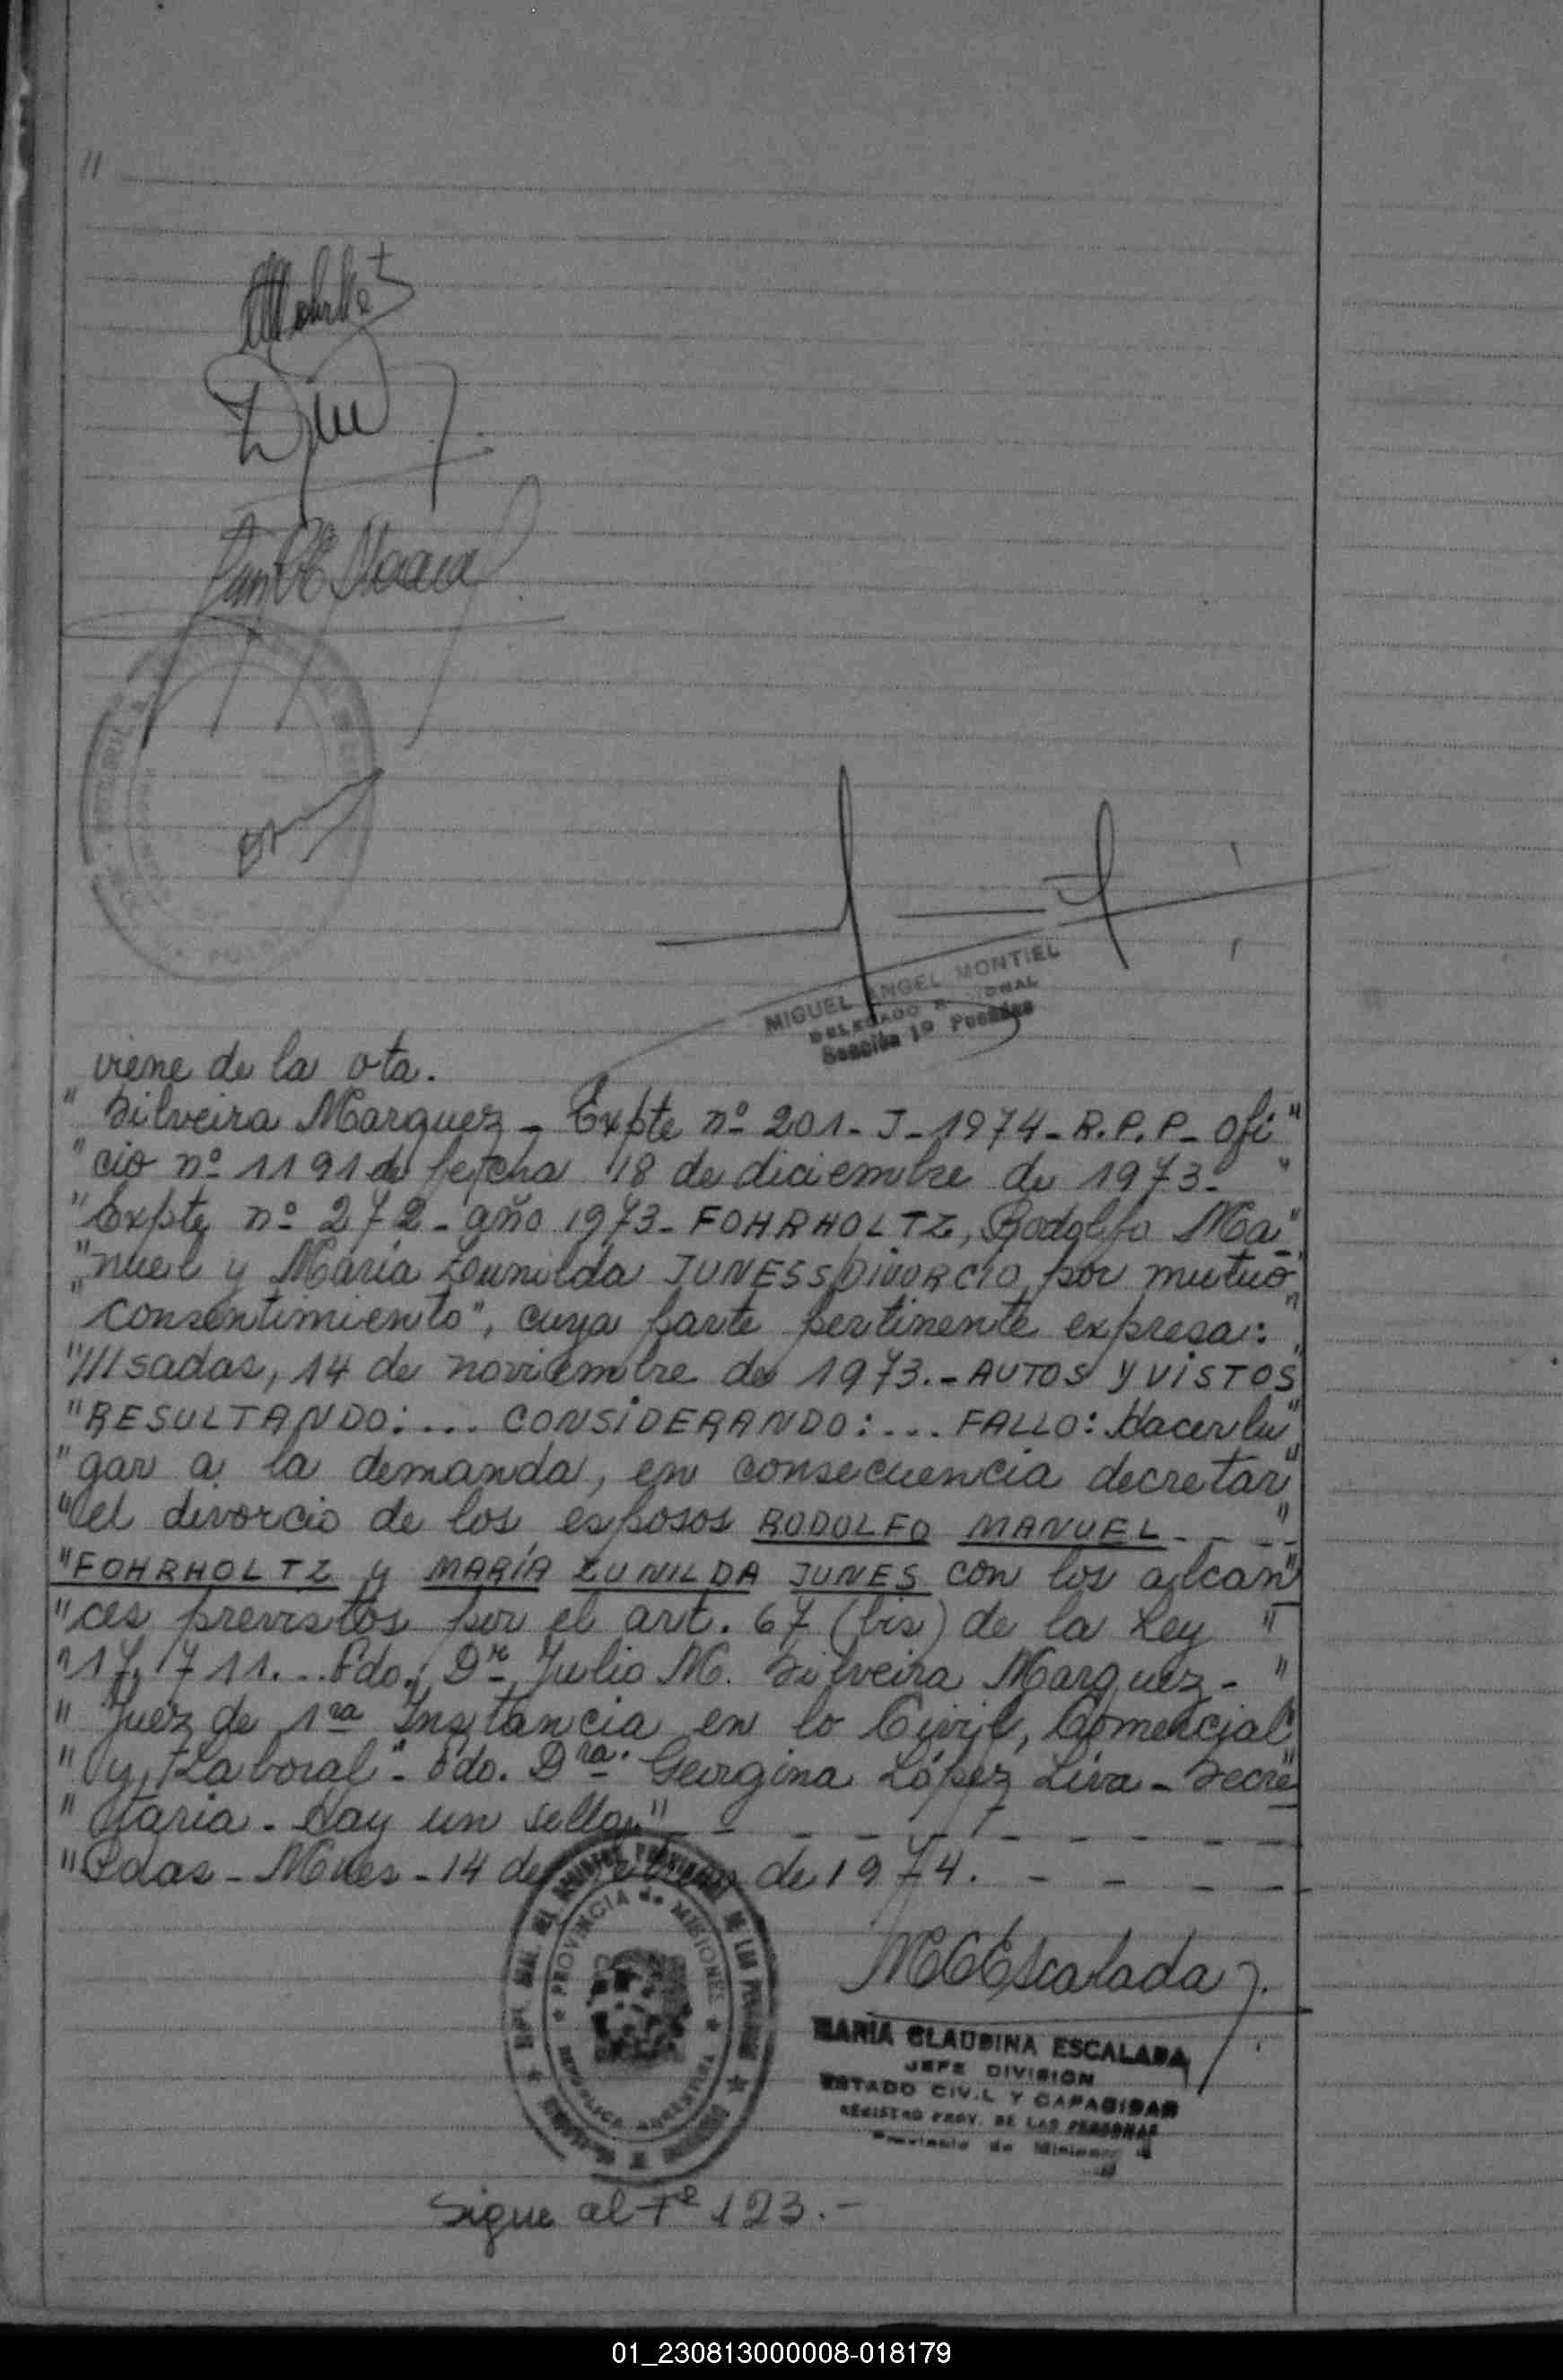 "
MIGUEL ANGEL MONTIEL
DELEGADO
Sección 1º Posadas
viene de la vta.
" Silveira Marquez - Expte nº 201 - J - 1974 - R.P.P - Ofi "
" cio nº 1191 de fecha 18 de diciembre de 1973 - "
" Expte nº 272 - año 1973 - FOHRHOLTZ, Rodolfo Ma "
" nuel y María Zunilda JUNES S/DIVORCIO por mutuo "
" consentimiento", cuya parte pertinente expresa: "
" ///sadas, 14 de noviembre de 1973. - AUTOS Y VISTOS
" RESULTANDO: ... CONSIDERANDO: ... FALLO: Hacer lu "
" gar a la demanda, en consecuencia decretar "
" el divorcio de los esposos RODOLFO MANUEL - - - "
" FOHRHOLTZ y MARÍA ZUNILDA JUNES con los alcan "
" ces previstos por el art. 67 (bis) de la Ley "
" 17.711. .. Fdo. Dr. Julio M. Silveira Marquez - "
" Juez de 1ra Instancia en lo Civil, Comercial "
" y Laboral". Fdo. Dra. Georgina López Liva - Secre "
" taria - Hay un sello " - - - - - - - - - -
" Pdas - Mnes - 14 de de 1974. - - - - -
PROVINCIA de MISIONES
REPUBLICA ARGENTINA
MCEscalada
MARIA CLAUDINA ESCALADA
JEFE DIVISION
ESTADO CIVIL Y CAPACIDAD
REGISTRO PROV. DE LAS PERSONAS
Provincia de Misiones
Sigue al Fº 123. -
01_230813000008-018179